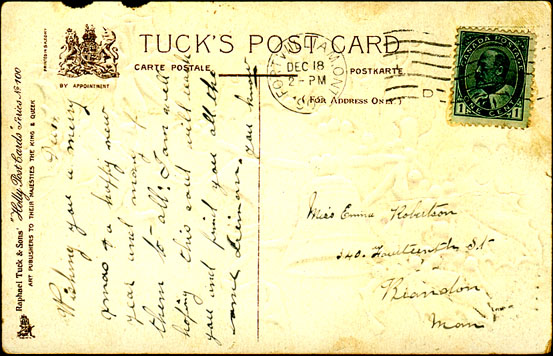 TUCK'S POST CARD
CARTE POSTALE
POSTKARTE
(FOR ADDRESS ONLY)
BY APPOINTMENT
PRINTED IN SAXONY
Raphael Tuck & Sons' "Holly Post Cards" Series No 100
ART PUBLISHERS TO THEIR MAJESTIES THE KING & QUEEN
FORT WILLIAM ONT
DEC 18
2 - PM
D
CANADA POSTAGE
1 ONE CENT 1
Wishing you a merry
xmas & a happy new
year and many of
them to all. I am well
hoping this card will
you and find you all the
same
you know
Miss Emma Robertson
340. Fourteenth St
Brandon
Man